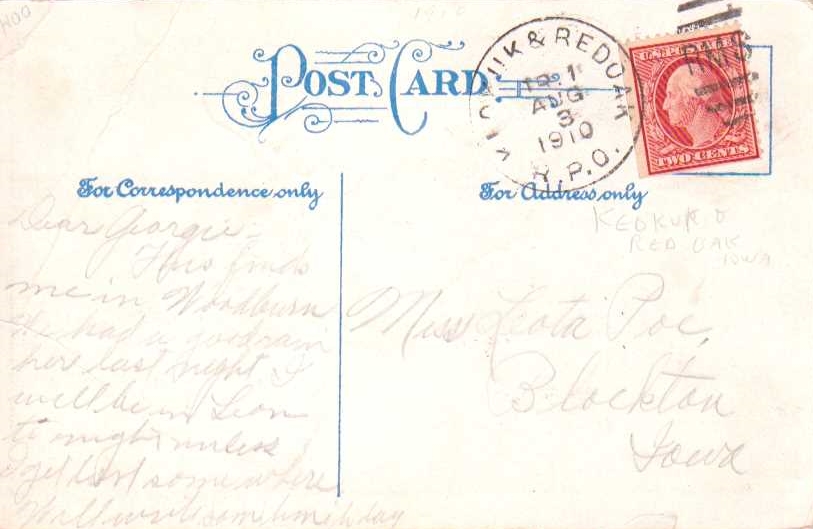 1910
H00
POST CARD.
KEOKUK & RED OAK
TR. 1
AUG
3
1910
R.P.O.
RMS
U.S. POSTAGE
TWO CENTS
For Correspondence only
For Address only
KEOKUK
RED OAK
IOWA
Dear Georgie =
This finds
me in Woodburn
We had a good rain
her last night I
will be in Leon
to night unless
I get lost somewhere
Miss Leota Poe,
Blockton
Iowa